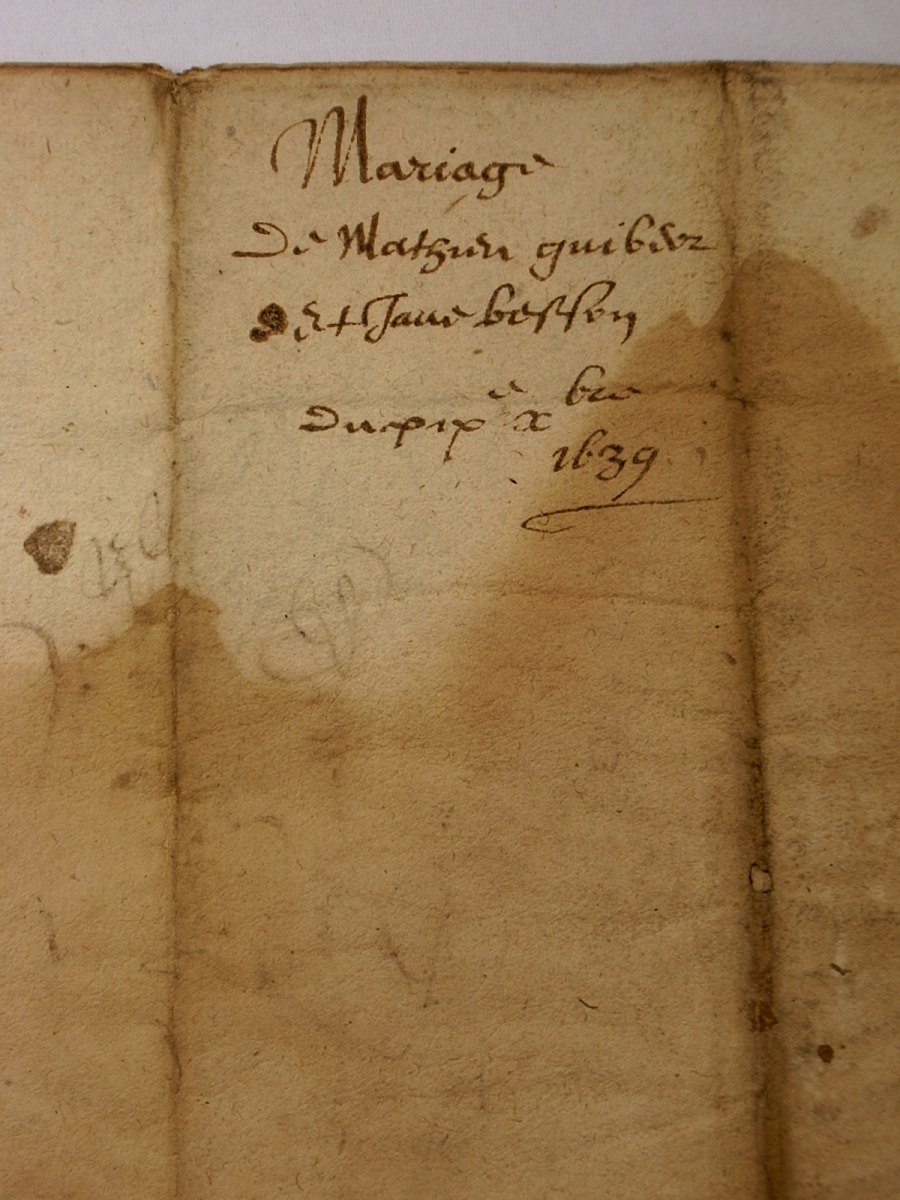 Mariage
De Mathieu guibert
Et Jane bessen
Du xix e x bre
1639